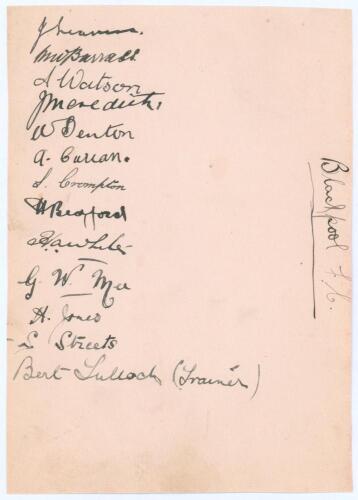 J Leaver.
M Barrass
A Watson
J Meredith
W Benton
A. Curran.
L. Crompton
H Bedford
H. A. White
G. W. Mee
H. Jones
S Streets
Bert Tulloch (Trainer)
Blackpool F.C.